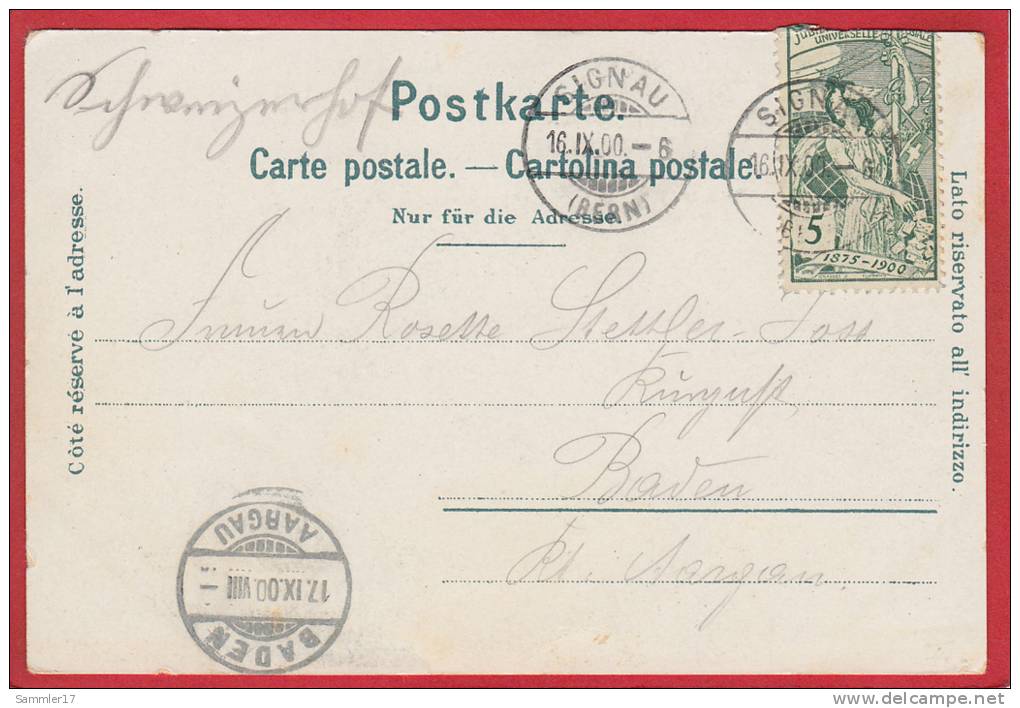 Schweizerhof
Postkarte.
Carte postale. — Cartolina postale.
Nur für die Adresse.
Côté réservé à l'adresse.
Lato riservato all' indirizzo.
SIGNAU
16.IX.00.–6
(BERN)
UNIVERSELLE
5
1875–1900
SIGNAU
16.IX.00.–6
Frauen Rosette Stettler-Joss
Kurgast
Baden
Kt. Aargau
AARGAU
17.IX.00.VIII
BADEN
Sammler17
www.delcampe.net